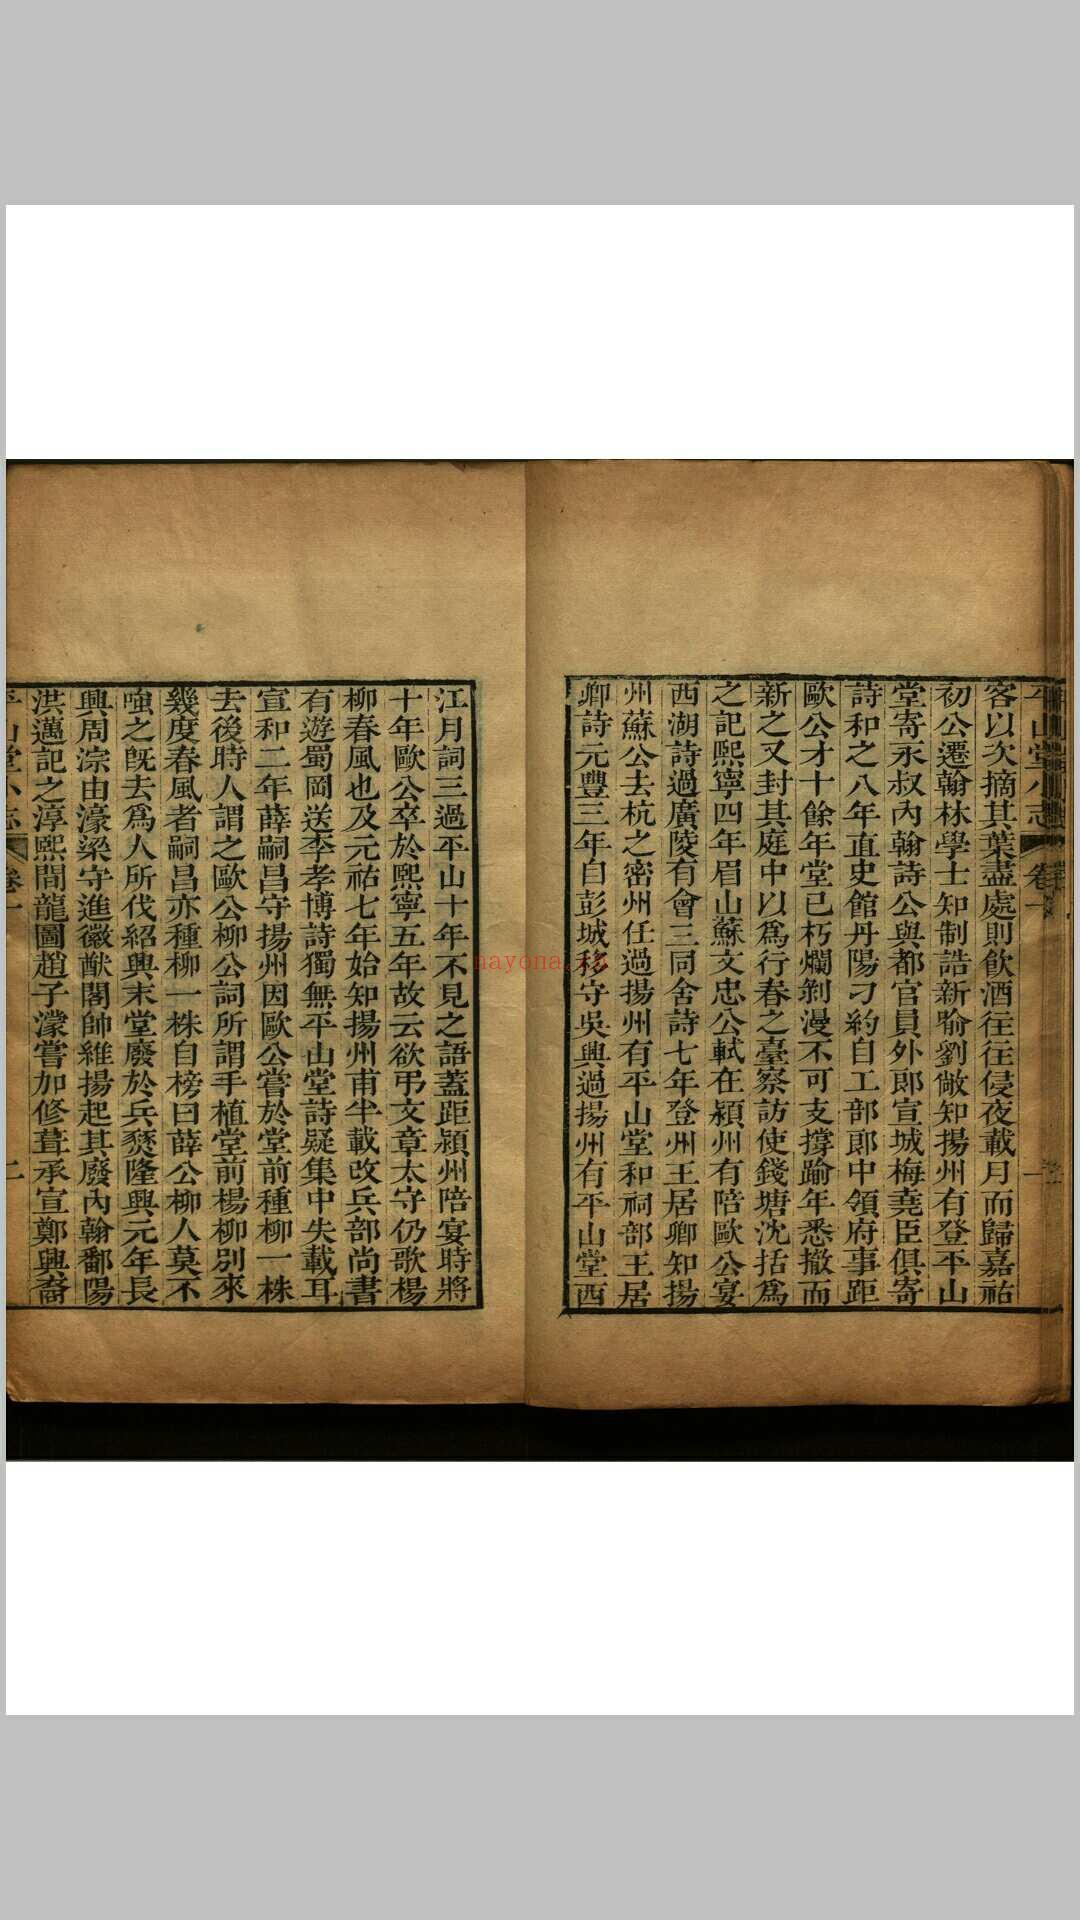 平山堂小志 卷一 一
客以次摘其葉盡處則飮酒往往侵夜載月而歸嘉祐
初公遷翰林學士知制誥新喻劉敞知揚州有登平山
堂寄永叔內翰詩公與都官員外郎宣城梅堯臣俱寄
詩和之八年直史館丹陽刁約自工部郎中領府事距
歐公才十餘年堂已朽爛剝漫不可支撐踰年悉撤而
新之又封其庭中以爲行春之臺察訪使錢塘沈括爲
之記熙寧四年眉山蘇文忠公軾在潁州有陪歐公宴
西湖詩過廣陵有會三同舍詩七年登州王居卿知揚
州蘇公去杭之密州任過揚州有平山堂和祠部王居
卿詩元豐三年自彭城移守吳興過揚州有平山堂西
江月詞三過平山十年不見之語蓋距潁州陪宴時將
十年歐公卒於熙寧五年故云欲弔文章太守仍歌楊
柳春風也及元祐七年始知揚州甫半載改兵部尚書
有遊蜀岡送李孝博詩獨無平山堂詩疑集中失載耳
宣和二年薛嗣昌守揚州因歐公嘗於堂前種柳一株
去後時人謂之歐公柳公詞所謂手植堂前楊柳別來
幾度春風者嗣昌亦種柳一株自榜曰薛公柳人莫不
嗤之旣去爲人所伐紹興末堂廢於兵燹隆興元年長
興周淙由濠梁守進徽猷閣帥維揚起其廢內翰鄱陽
洪邁記之淳熙間龍圖趙子濛嘗加修葺承宣鄭興裔
平山堂小志 卷一 二
nayona.cn